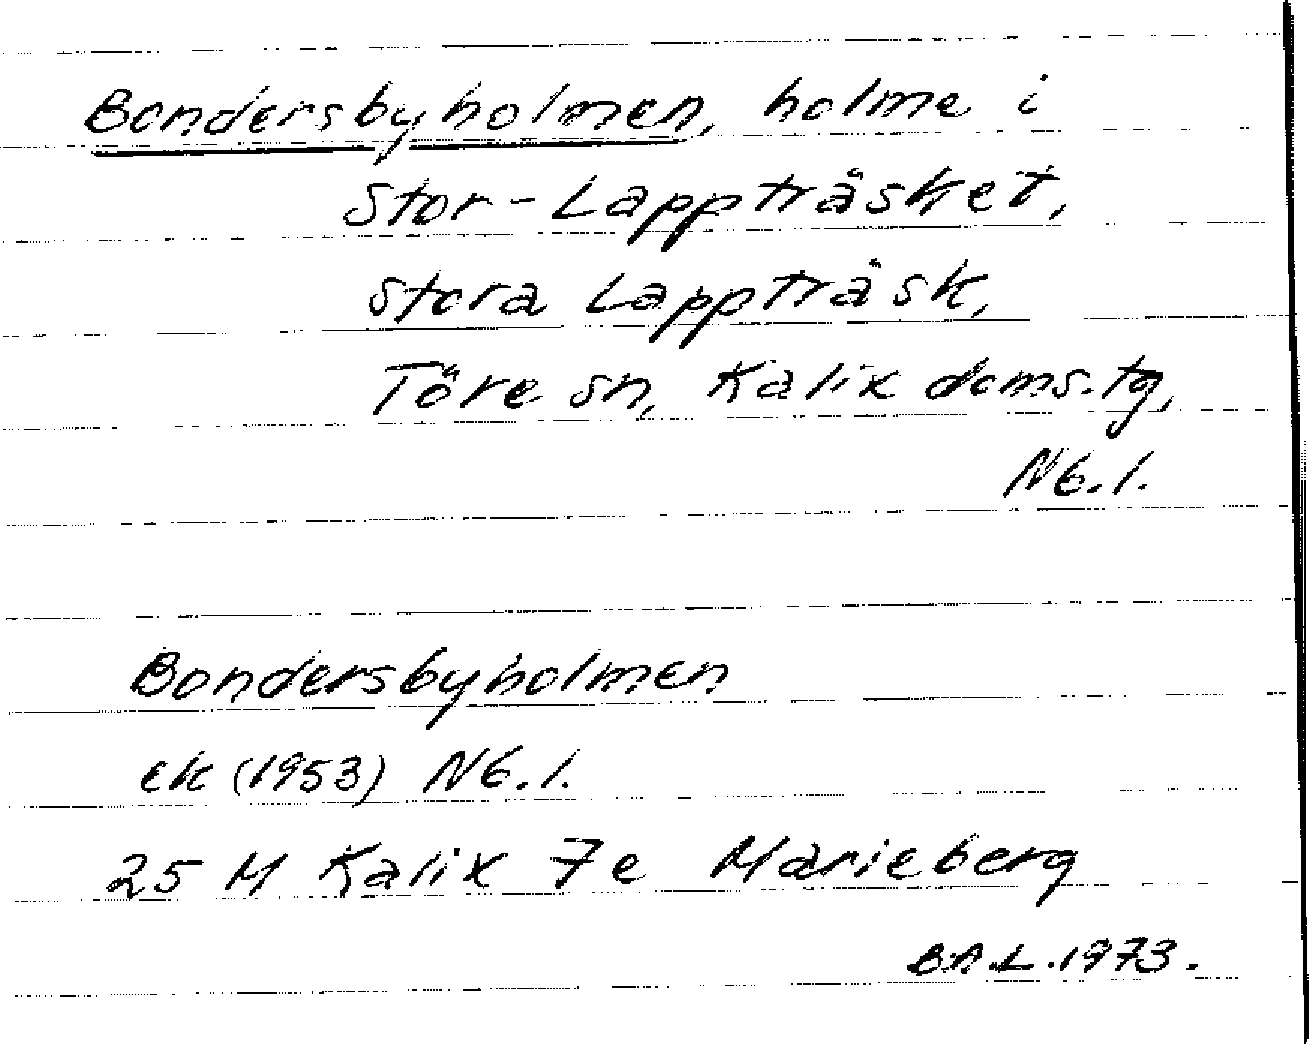 Bondersbyholmen, holme i
Stor-Lappträsket,
Stora Lappträsk,
Töre sn, Kalix doms.tg,
Nb.l.
Bondersbyholmen
ek (1953) Nb.l.
25 M Kalix 7e Marieberg
B.A.L. 1973.